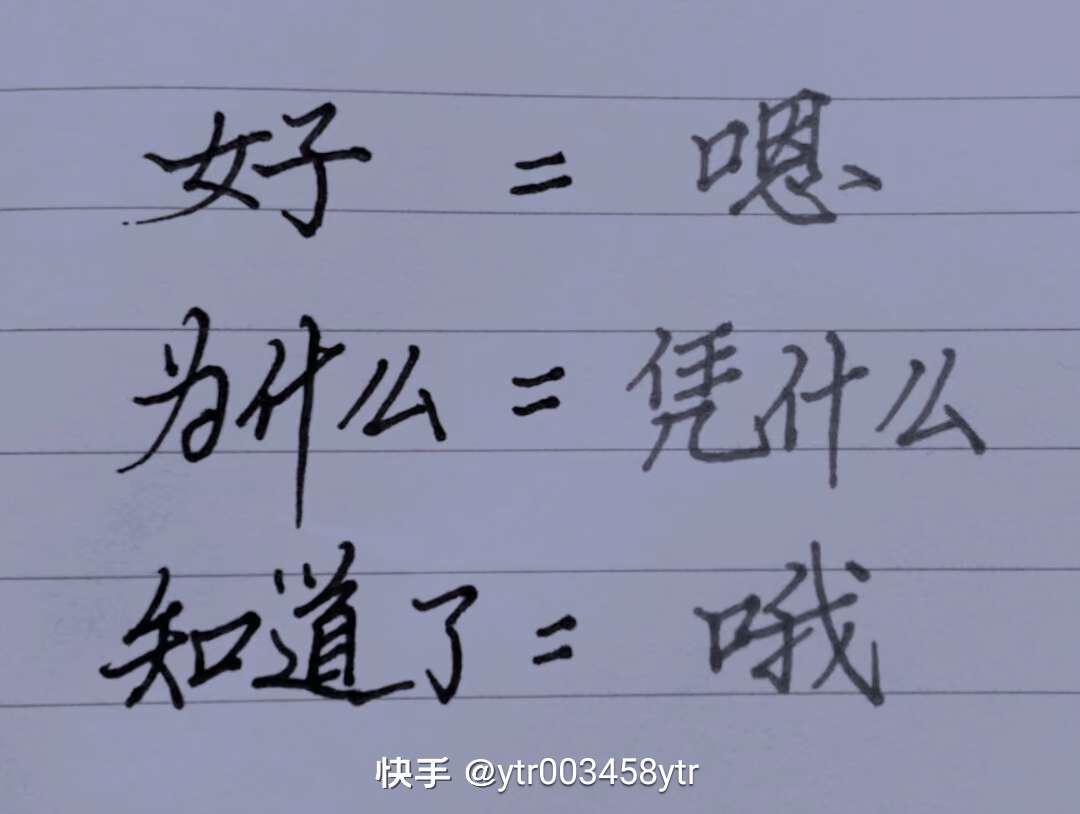 好 = 嗯、
为什么 = 凭什么
知道了 = 哦
快手 @ytr003458ytr